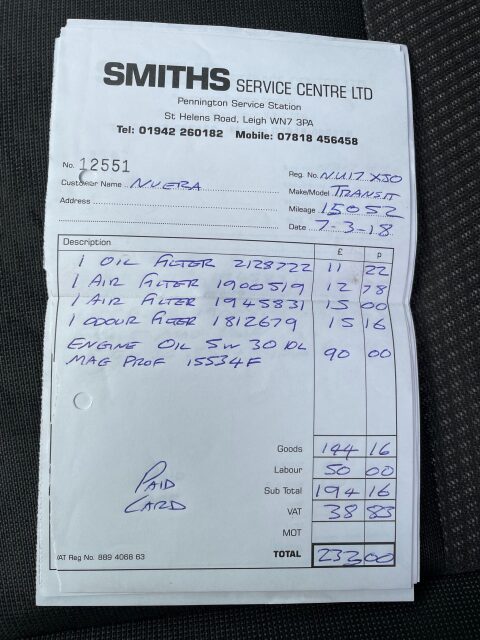 SMITHS SERVICE CENTRE LTD
Pennington Service Station
St Helens Road, Leigh WN7 3PA
Tel: 01942 260182 Mobile: 07818 456458
No. 12551
Reg. No. NU17 XJO
Customer Name NUERA
Make/Model TRANSIT
Address
Mileage 15052
Date 7-3-18
Description £ p
1 OIL FILTER 2128722 11 22
1 AIR FILTER 1900519 12 78
1 AIR FILTER 1945831 15 00
1 ODOUR FILTER 1812679 15 16
ENGINE OIL 5W 30 10L
MAG PROF 15534F 90 00
Goods 144 16
Labour 50 00
PAID
Sub Total 194 16
CARD
VAT 38 83
MOT
VAT Reg No. 889 4068 63 TOTAL 233 00